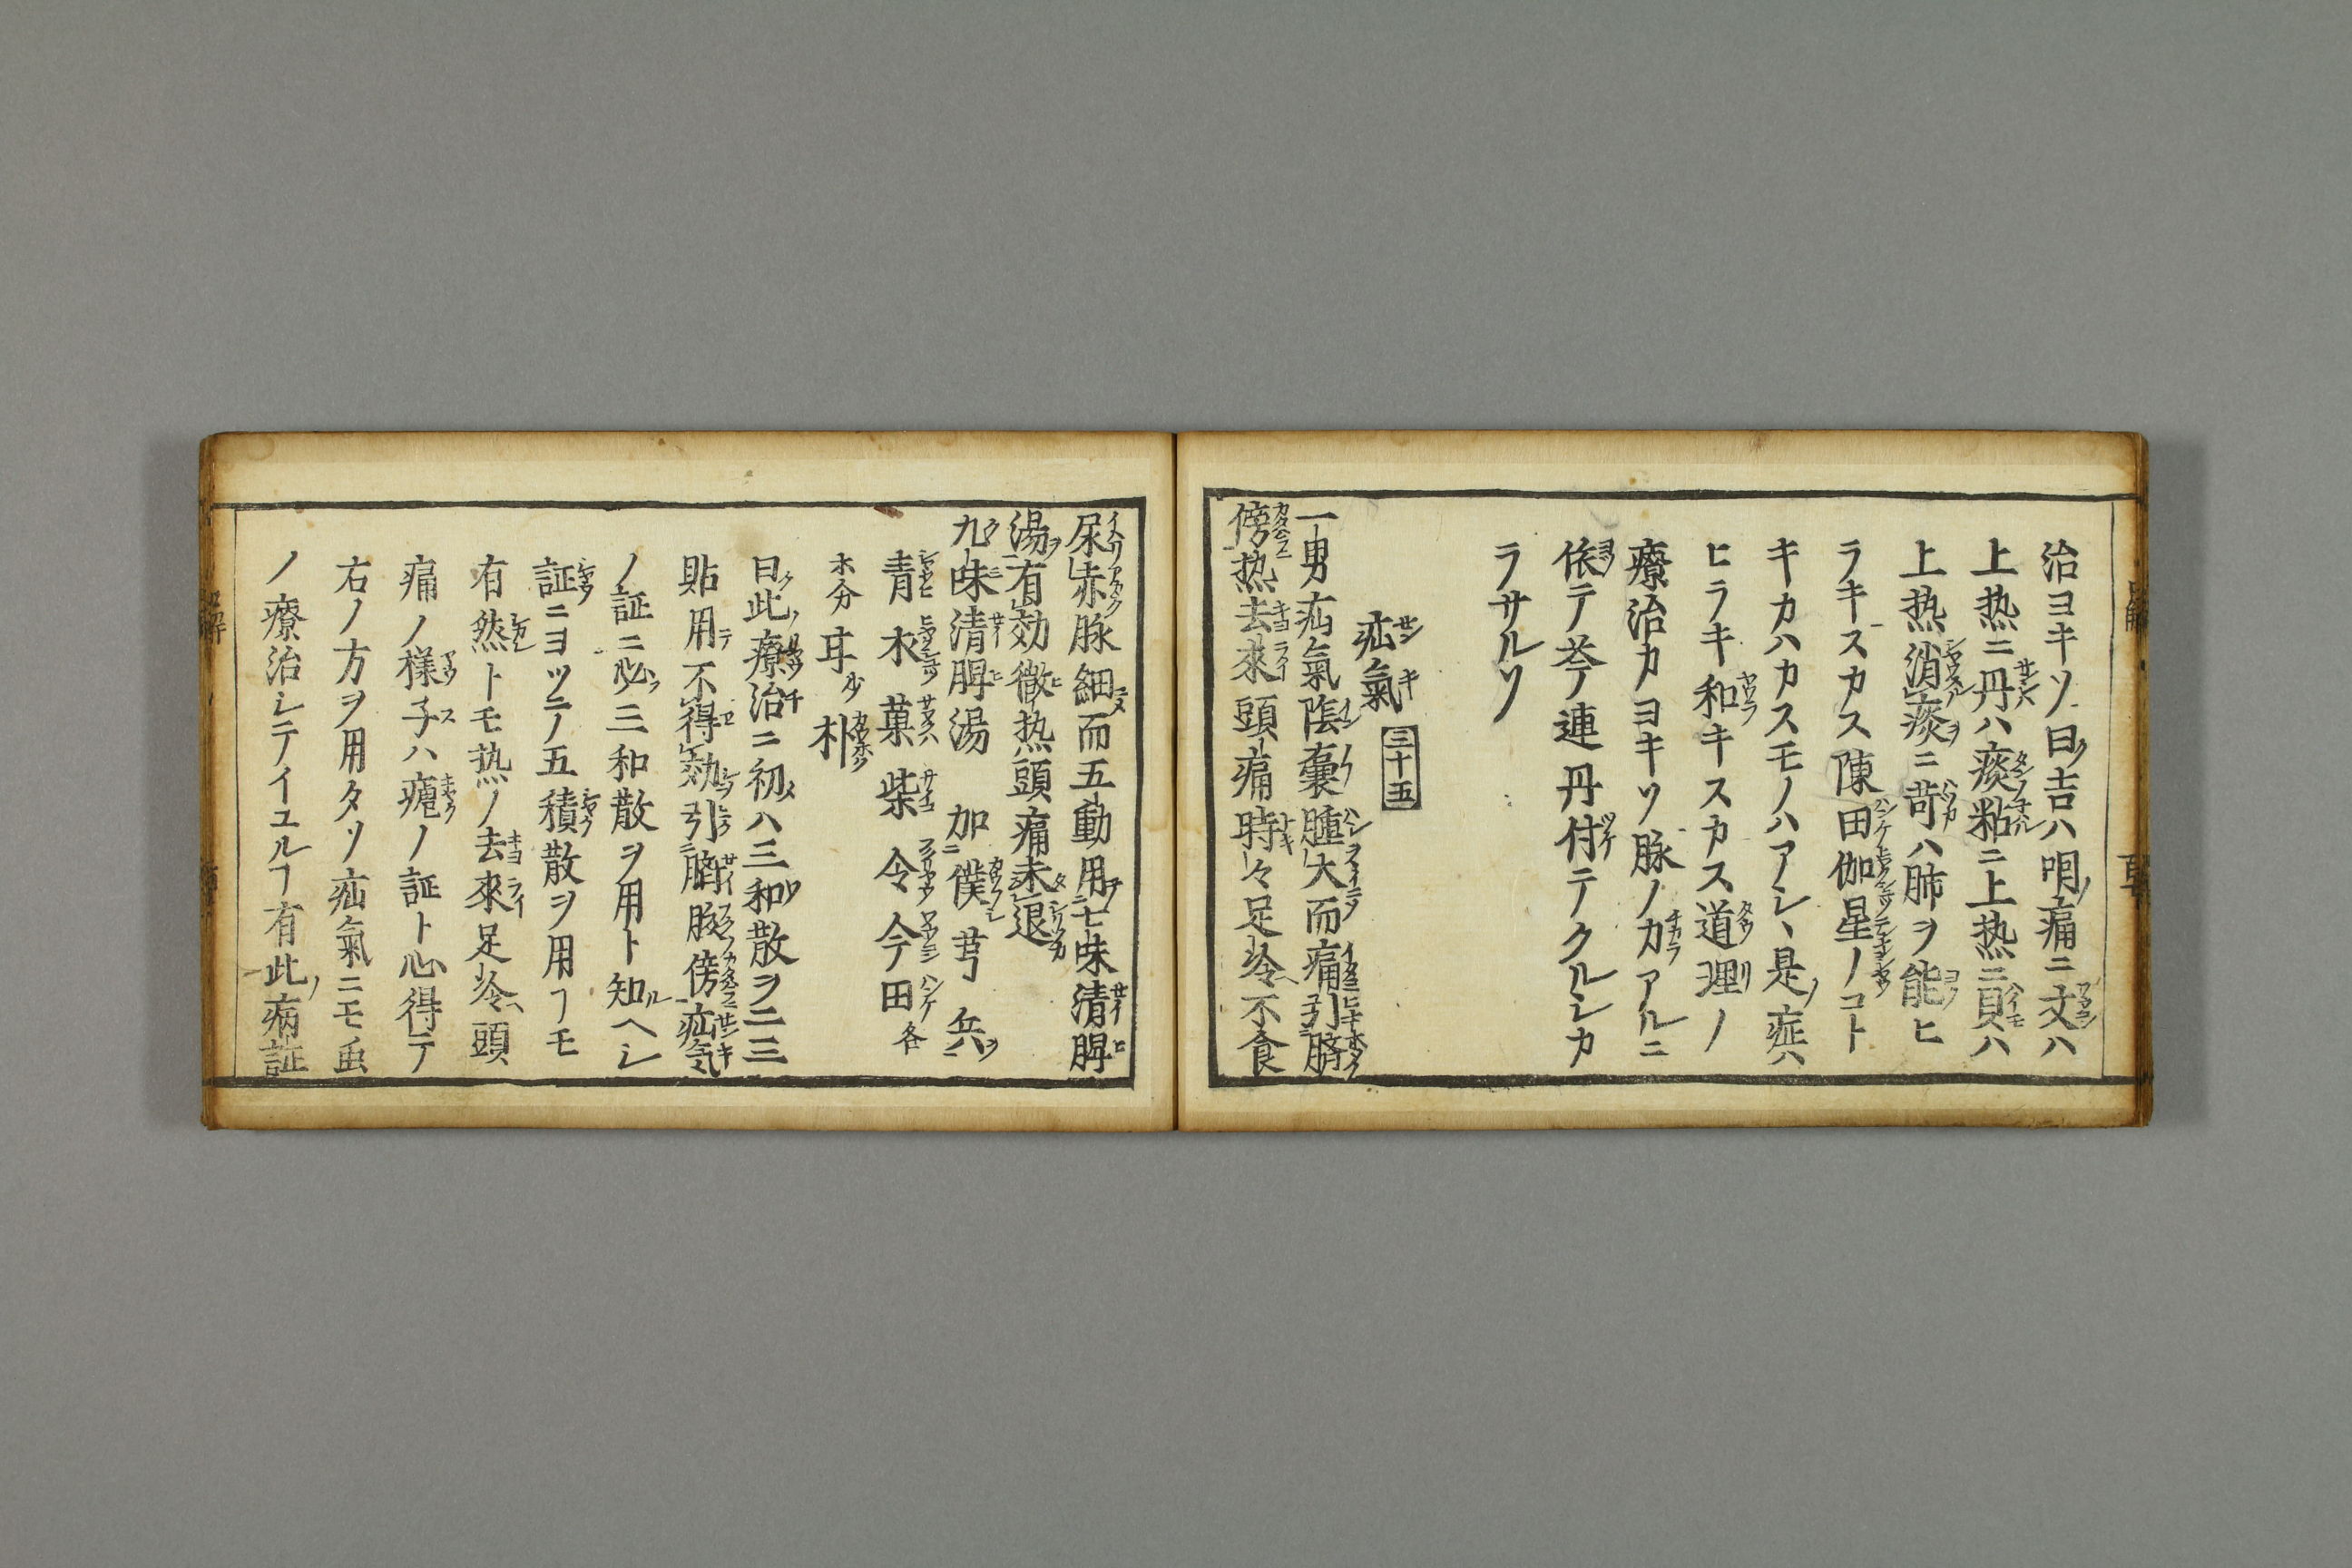 治ヨキソ曰吉ハ咽痛ニ文ハ
上热ニ丹ハ痰粘ニ上热ニ貝ハ
上热消痰ニ苛ハ肺ヲ能ヒ
ラキスカス陳田伽星ノコト
キカハカスモノハアシヽ是症ハ
ヒラキ和キスカス道理ノ
療治カヨキソ脉ノカアルニ
依テ芩連丹付テクルシカ
ラサルソ
疝氣 三十五
一男疝氣陰嚢腫大而痛引臍
傍热去來頭痛時々足冷不食
尿赤脉細而五動用七味清脾
湯有効微热頭痛未退
九味清脾湯 加僕芎兵
青朩菓柴令今田各
朩分耳少朴
曰此療治ニ初ハ三和散ヲ二三
貼用不得効引臍腹傍疝気
ノ証ニ必三和散ヲ用ト知ヘシ
証ニヨツテノ五積散ヲ用ヿモ
有然トモ热ノ去來足冷頭
痛ノ様子ハ瘧ノ証ト心得テ
右ノ方ヲ用タソ疝氣ニモ虫
ノ療治シテイユルヿ有此病証